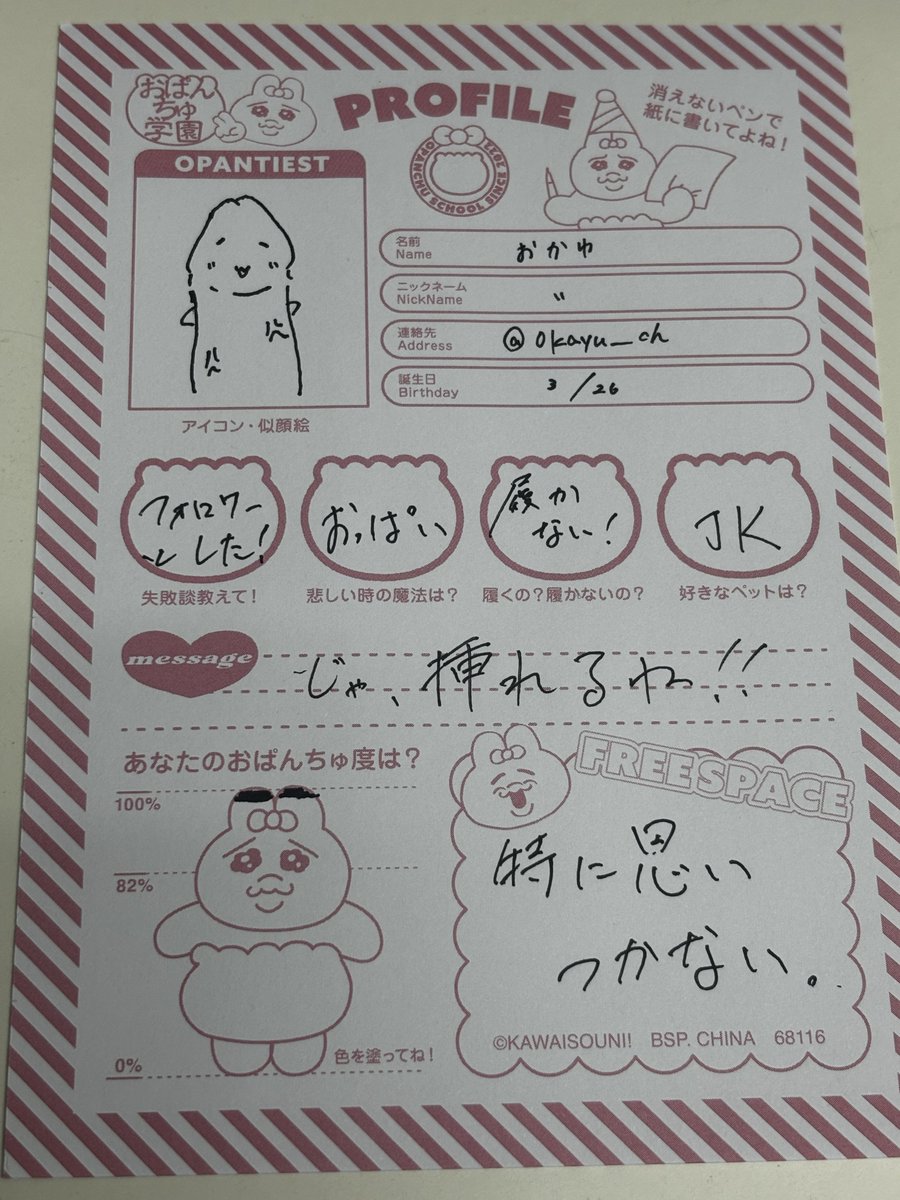 おぱんちゅ学園
PROFILE
消えないペンで
紙に書いてよね！
OPANCHU SCHOOL SINCE 2022
OPANTIEST
名前
Name
おかゆ
ニックネーム
NickName
〃
連絡先
Address
@okayu_ch
誕生日
Birthday
3/26
アイコン・似顔絵
フォロワー
とした！
おっぱい
履か
ない！
JK
失敗談教えて！
悲しい時の魔法は？
履くの？履かないの？
好きなペットは？
message
じゃ、挿れるね!!
あなたのおぱんちゅ度は？
100%
82%
0%
色を塗ってね！
FREE SPACE
特に思い
つかない。
©KAWAISOUNI! BSP. CHINA 68116